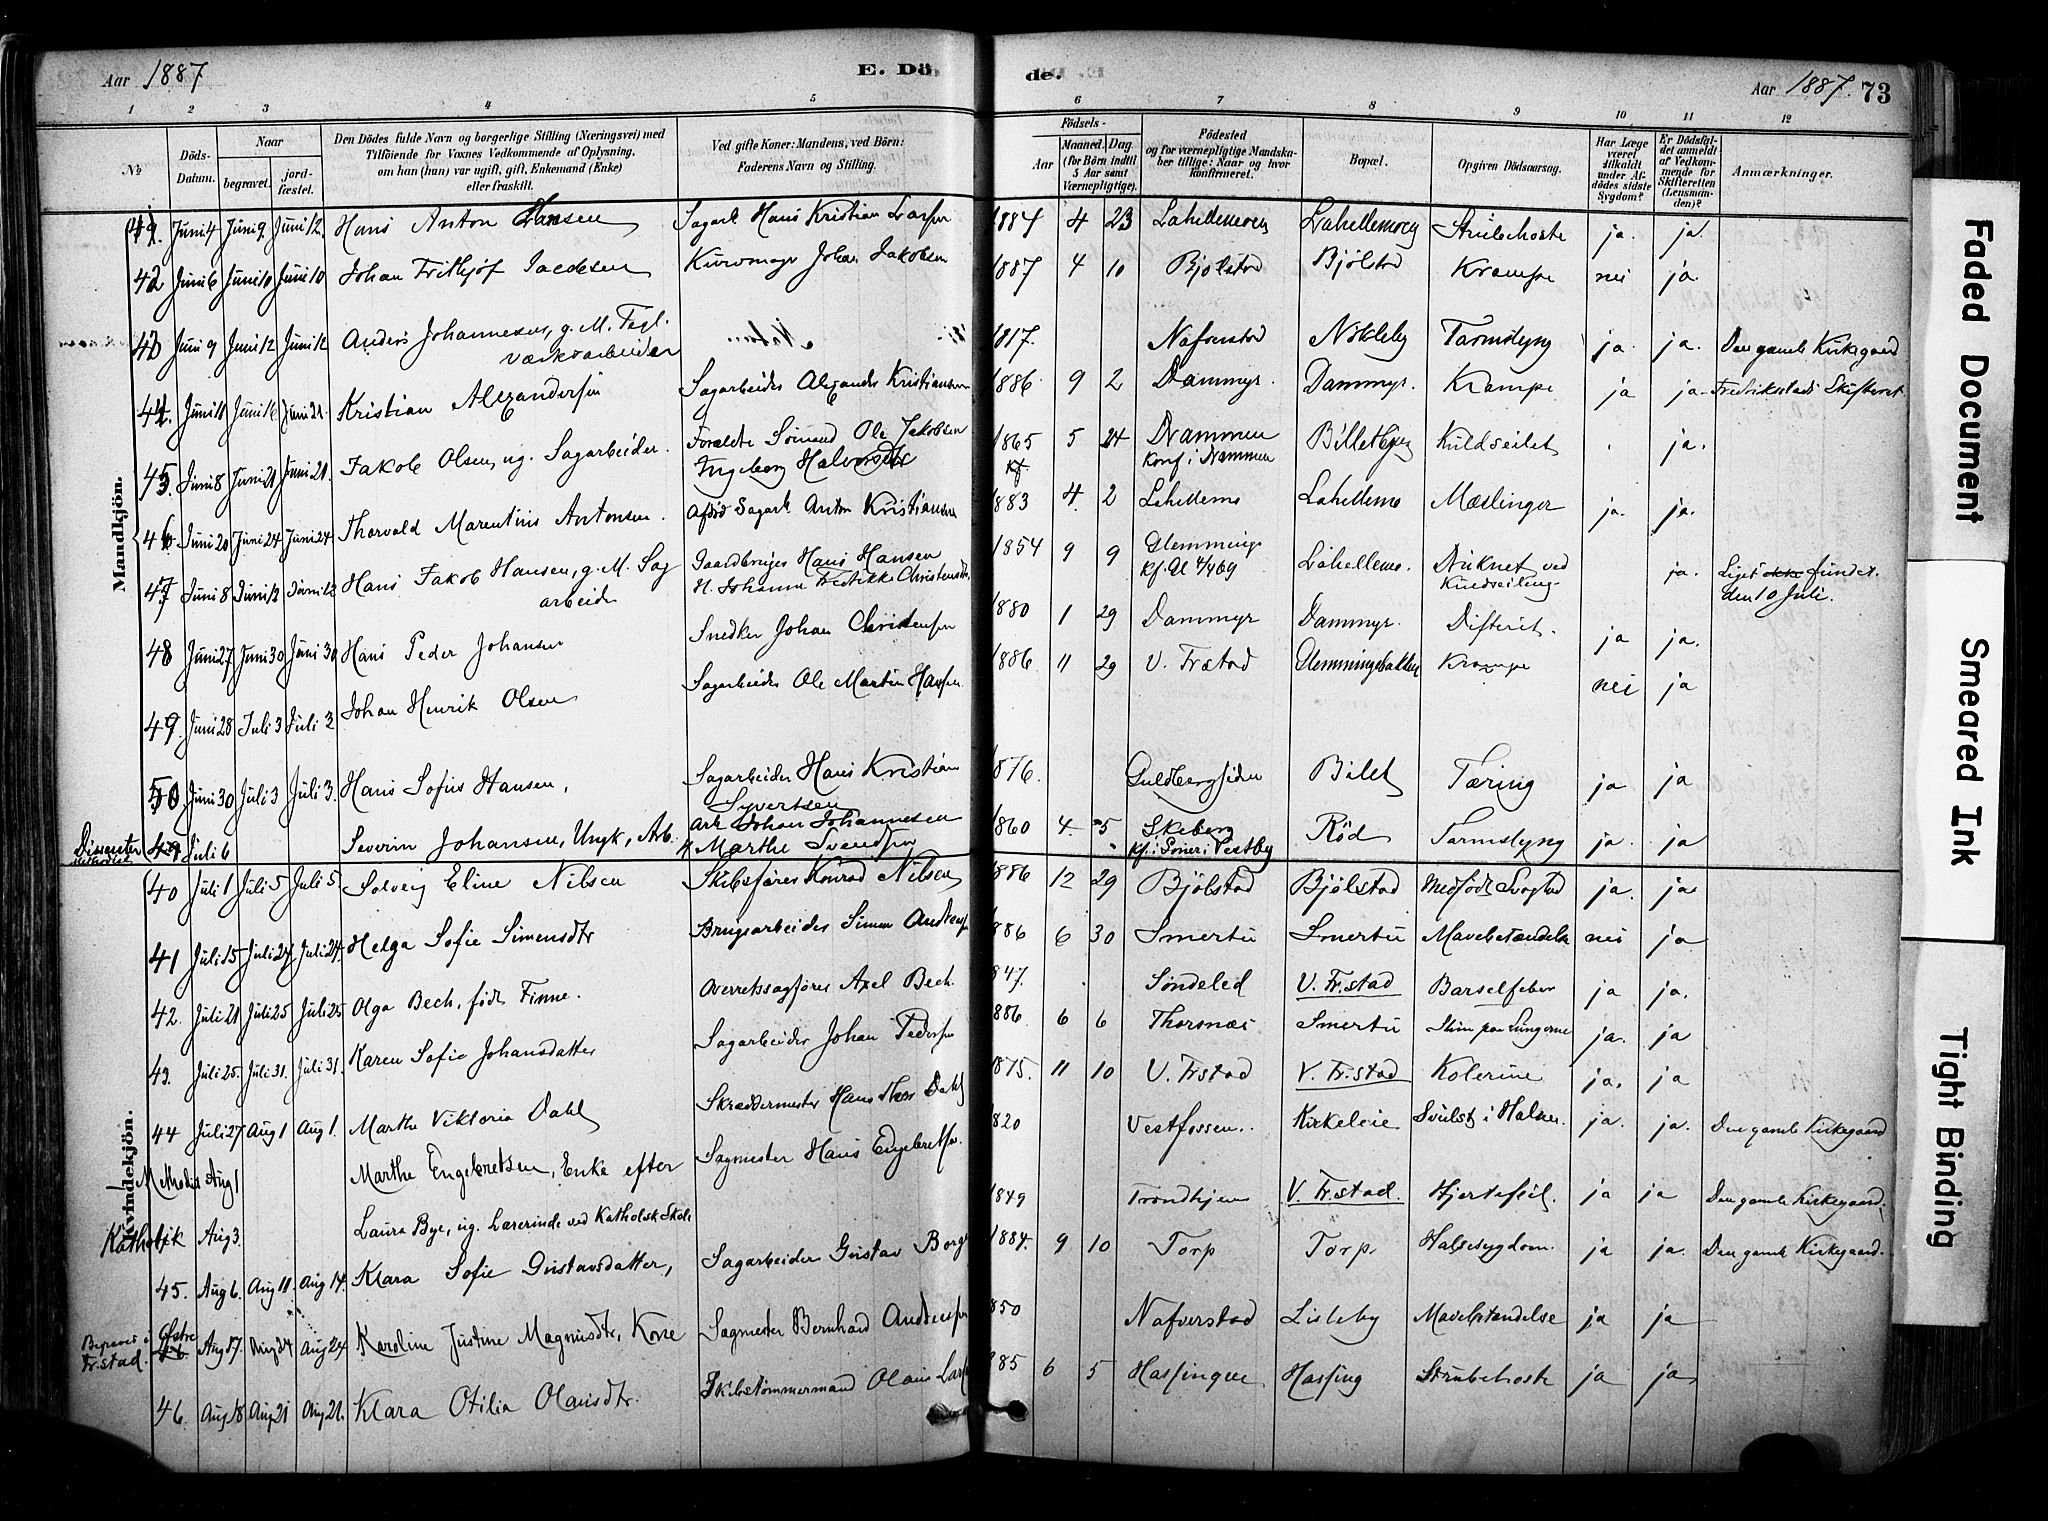 Aar 1887
E. Dö-
de.
Aar 1887.
73
1 2 3 4 5 6 7 8 9 10 11 12
No
Döds-Datum.
Naar
begravet.
jord-fæstet.
Den Dödes fulde Navn og borgerlige Stilling (Næringsvei) med
Tilföiende for Voxnes Vedkommende af Oplysning,
om han (hun) var ugift, gift, Enkemand (Enke)
eller fraskilt.
Ved gifte Koner: Mandens, ved Börn:
Faderens Navn og Stilling.
Födsels-
Aar
Maaned. Dag.
(for Börn indtil
5 Aar samt
Værnepligtige).
Födested
og for værnepligtige Mandska-
ber tillige: Naar og hvor
konfirmeret.
Bopæl.
Opgiven Dödsaarsag.
Har Læge
været
tilkaldt
under Af-
dödes sidste
Sygdom?
Er Dödsfal-
det anmeldt
af Vedkom-
mende for
Skifteretten
(Lensman-
den)?
Anmærkninger.
Mandkjön.
41. Juni 4 Juni 9. Juni 12. Hans Anton Hansen Sagarb Hans Kristian Larsen 1887 4 23 Lahellemoen Lahellemoen Strubehoste ja. ja.
42 Juni 6 Juni 10 Juni 10 Johan Frithjof Jacobsen Johan Jakobsen 1887 4 10 Bjølstad Bjølstad Krampe nei ja
43 Juni 9 Juni 12 Juni 12 Anders Johannesen, g. M. Tegl-
værksarbeider 1817. Nafverstad Nökleby Tarmslyng ja ja. Den gamle Kirkegaard
44. Juni 11 Juni 16 Juni 21. Kristian Alexandersen Sagarbeider Alexander Kristiansen 1886 9 2 Dammyr. Dammyr. Krampe ja ja. Fredriksstads Skifteret
45 Juni 8 Juni 21 Juni 21. Jakob Olsen, ug. Sagarbeider. Forældre Sömand Ole Jakobsen
Ingeborg Halvorsdtr 1865 5 24 Drammen
konf i Drammen Kuldseilet ja.
46 Juni 20 Juni 24 Juni 24 Thorvald Marentius Antonsen. Afdöd Sagarb Anton Kristiansen 1883 4. 2 Lahellemo Lahellemo Mæslinger ja. ja.
47 Juni 8 Juni 12 Juni 12 Hans Jakob Hansen, g. M. Sag
arbeider Gaardbruger Hans Hansen
H. Johanne Fredrikke Christensdtr, 1854 9 9 Glemminge Lahellemo. Druknet ved
Kuldseiling. ja. Liget funden
den 10 Juli.
48 Juni 27 Juni 30 Juni 30 Hans Peder Johansen Snedker Johan Christensen 1880 1 29 Dammyr Dammyr. Difterit. ja ja.
49 Juni 28 Juli 3 Juli 3 Johan Henrik Olsen Sagarbeider Ole Martin Hansen. 1886 11 29 V. Frstad Glemmingebakken Krampe nei ja
50 Juni 30 Juli 3 Juli 3. Hans Sofus Hansen, Sagarbeider Hans Kristian
Syvertsen 1876. Guldbergsiden Bilet Tæring ja ja
Dissenter
Methodist Juli 6 Severin Johansen, Ungk, Arb. Arb Johan Johannesen
Marthe Svendsen 1860 4. 5 Skeberg
Kf. i Soner i Vestby Röd Tarmslyng ja. ja
Kvindekjön.
40 Juli 1 Juli 5 Juli 5 Solveig Eline Nilsen Skibsförer Konrad Nilsen 1886 12 29 Bjölstad Bjölstad Medfödt Svaghed ja. ja.
41 Juli 15 Juli 24 Juli 24. Helga Sofie Simensdtr Brugsarbeider Simen Andersen 1886 6 30 Smertu Smertu Mavebetændelse nei ja
42. Juli 21 Juli 25 Juli 25 Olga Bech, född Finne. Overretssagförer Axel Bech. 1847. Söndeled V. Fr.stad Barselfeber ja ja.
43. Juli 25. Juli 31. Juli 31. Karen Sofie Johansdatter Sagarbeider Johan Pedersen 1886. 6 6 Thorsnæs Smertu Slim paa Lungerne ja. ja
44 Juli 27 Aug 1 Aug 1. Marthe Viktoria Dahl Skræddermester Hans Thor Dahl 1875. 11 10 V. Frstad V. Fr.stad Kolerine ja. ja
Methodist Aug 1 Marthe Engebretsen, Enke efter Sagmester Hans Engebretsen. 1820 Vestfossen. Kirkeleie Svulst i Halsen. ja. ja. Den gamle Kirkegaard
Katholik Aug 3. Laura Bye, ug. Lærerinde ved Katholsk Skole 1849 Trondhjem V. Fr.stad. Hjertefeil. ja ja Den gamle Kirkegaard.
45. Aug 6. Aug 11. Aug 14. Klara Sofie Gustavsdatter, Sagarbeider Gustav Borge 1884. 9 10 Torp Torp. Halssygdom. ja ja. Den gamle Kirkegaard.
Begravet i
Fr.stad. Östre Aug 17. Aug 24 Aug 24 Karoline Justine Magnusdtr, Kone Sagmester Bernhard Andersen 1850 Nafverstad Lisleby Mavebetændelse ja ja
46. Aug 18 Aug 21 Aug 21. Klara Otilia Olausdtr. Skibstömmermand Olaus Lars 1885 6 5 Hassingen Hassing Strubehoste ja ja
Faded Document
Smeared Ink
Tight Binding